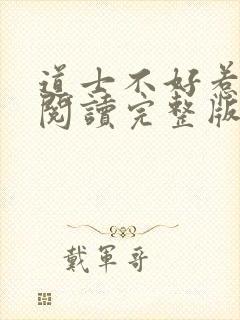 道士不好惹
閱讀完整版
戴軍哥